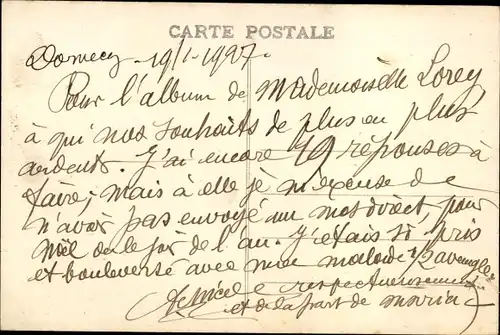 CARTE POSTALE
Domecy 19/1-1927.
Pour l'album de Mademoiselle Lorey
à qui nos souhaits de plus en plus
ardents. J'ai encore 79 réponses à
faire; mais à elle je m'excuse de
n'avoir pas envoyé un mot direct, pour
Noël ou le jour de l'an. J'étais si pris
et bouleversé avec mon malade 1/2 aveugle
respectueusement
et de la part de